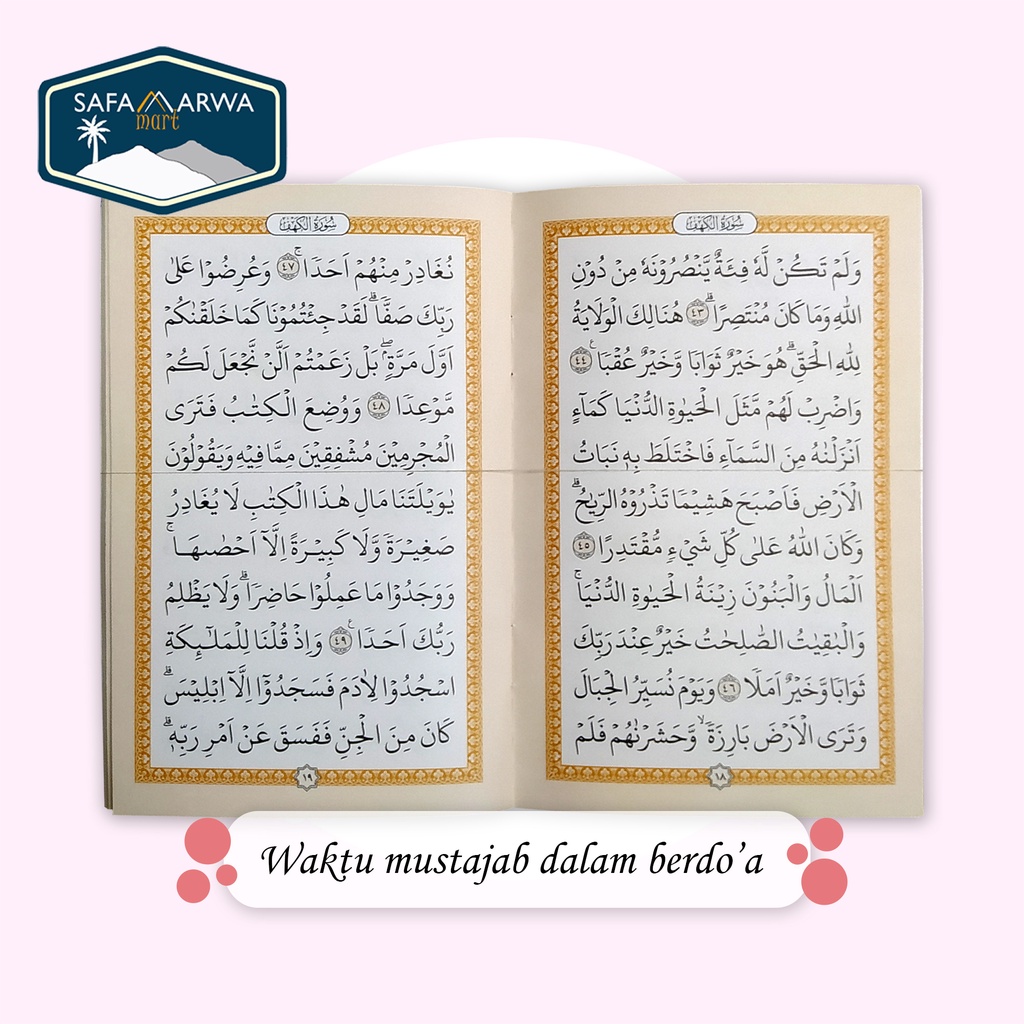 SAFA MARWA
mart
سُوْرَةُ الْكَهْفِ
وَلَمْ تَكُنْ لَّهٗ فِئَةٌ يَّنْصُرُوْنَهٗ مِنْ دُوْنِ
اللّٰهِ وَمَا كَانَ مُنْتَصِرًاۗ ٤٣ هُنَالِكَ الْوَلَايَةُ
لِلّٰهِ الْحَقِّۗ هُوَ خَيْرٌ ثَوَابًا وَّخَيْرٌ عُقْبًا ࣖ ٤٤
وَاضْرِبْ لَهُمْ مَّثَلَ الْحَيٰوةِ الدُّنْيَا كَمَاۤءٍ
اَنْزَلْنٰهُ مِنَ السَّمَاۤءِ فَاخْتَلَطَ بِهٖ نَبَاتُ
الْاَرْضِ فَاَصْبَحَ هَشِيْمًا تَذْرُوْهُ الرِّيٰحُۗ
وَكَانَ اللّٰهُ عَلٰى كُلِّ شَيْءٍ مُّقْتَدِرًا ٤٥
اَلْمَالُ وَالْبَنُوْنَ زِيْنَةُ الْحَيٰوةِ الدُّنْيَاۚ
وَالْبٰقِيٰتُ الصّٰلِحٰتُ خَيْرٌ عِنْدَ رَبِّكَ
ثَوَابًا وَّخَيْرٌ اَمَلًا ٤٦ وَيَوْمَ نُسَيِّرُ الْجِبَالَ
وَتَرَى الْاَرْضَ بَارِزَةًۙ وَّحَشَرْنٰهُمْ فَلَمْ
١٨
سُوْرَةُ الْكَهْفِ
نُغَادِرْ مِنْهُمْ اَحَدًاۚ ٤٧ وَعُرِضُوْا عَلٰى
رَبِّكَ صَفًّاۗ لَقَدْ جِئْتُمُوْنَا كَمَا خَلَقْنٰكُمْ
اَوَّلَ مَرَّةٍۢۖ بَلْ زَعَمْتُمْ اَلَّنْ نَّجْعَلَ لَكُمْ
مَّوْعِدًا ٤٨ وَوُضِعَ الْكِتٰبُ فَتَرَى
الْمُجْرِمِيْنَ مُشْفِقِيْنَ مِمَّا فِيْهِ وَيَقُوْلُوْنَ
يٰوَيْلَتَنَا مَالِ هٰذَا الْكِتٰبِ لَا يُغَادِرُ
صَغِيْرَةً وَّلَا كَبِيْرَةً اِلَّآ اَحْصٰىهَاۚ
وَوَجَدُوْا مَا عَمِلُوْا حَاضِرًاۗ وَلَا يَظْلِمُ
رَبُّكَ اَحَدًا ࣖ ٤٩ وَاِذْ قُلْنَا لِلْمَلٰۤىِٕكَةِ
اسْجُدُوْا لِاٰدَمَ فَسَجَدُوْٓا اِلَّآ اِبْلِيْسَۗ
كَانَ مِنَ الْجِنِّ فَفَسَقَ عَنْ اَمْرِ رَبِّهٖۗ
١٩
Waktu mustajab dalam berdo’a